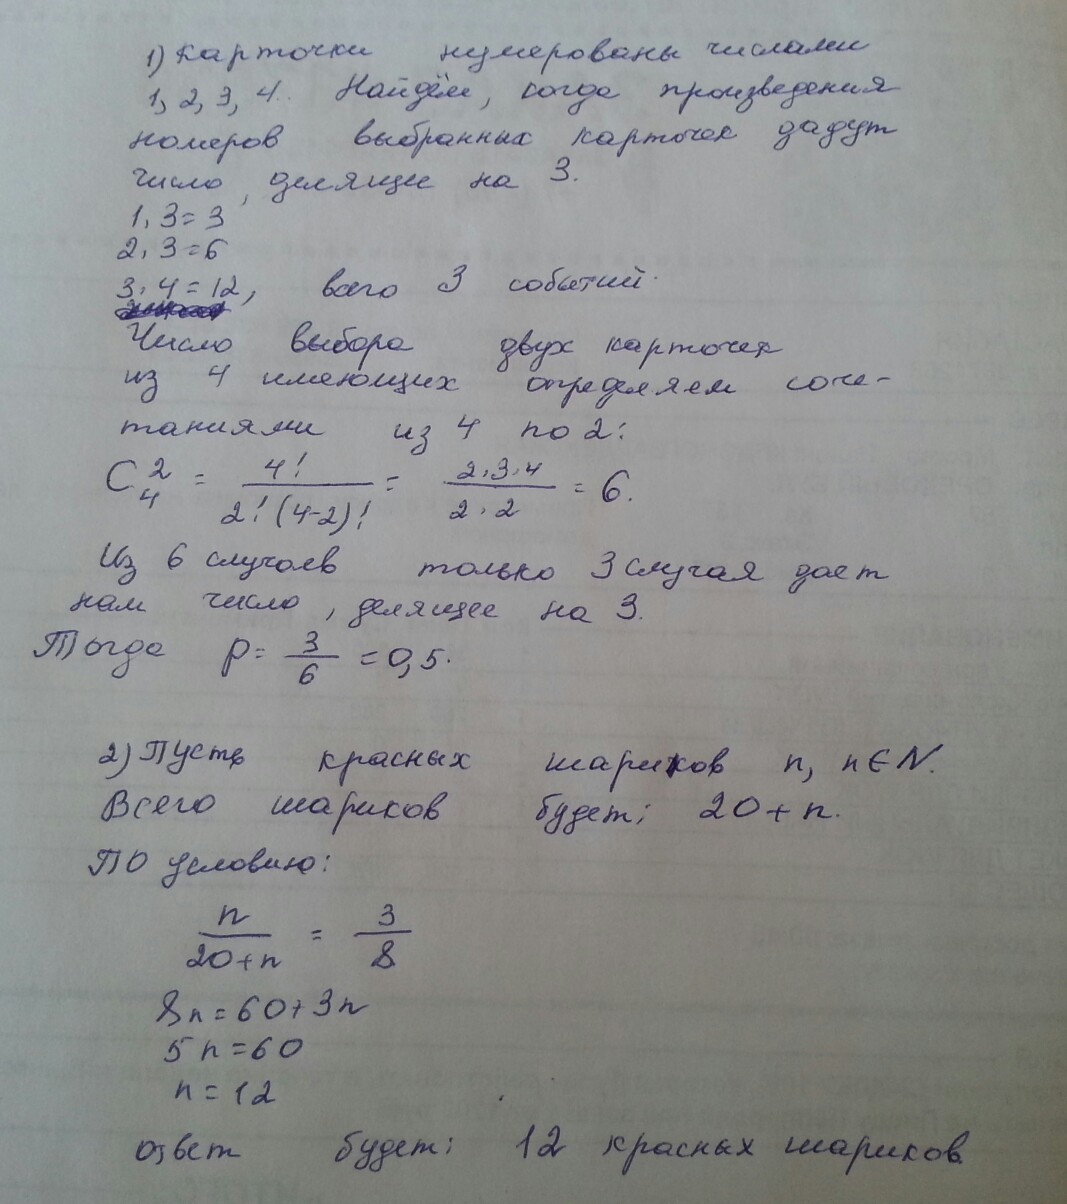 1) Карточки нумерованы числами
1, 2, 3, 4. Найдём, когда произведения
номеров выбранных карточек дадут
число, делящее на 3.
1·3=3
2·3=6
3·4=12, всего 3 событий.
Число выбора двух карточек
из 4 имеющих определяем соче-
таниями из 4 по 2:
C₄² = 4!/(2!(4-2)!) = 2·3·4/(2·2) = 6.
Из 6 случаев только 3 случая дает
нам число, делящее на 3.
Тогда p = 3/6 = 0,5.
2) Пусть красных шариков n, n∈N.
Всего шариков будет: 20+n.
По условию:
n/(20+n) = 3/8
8n=60+3n
5n=60
n=12
ответ будет: 12 красных шариков